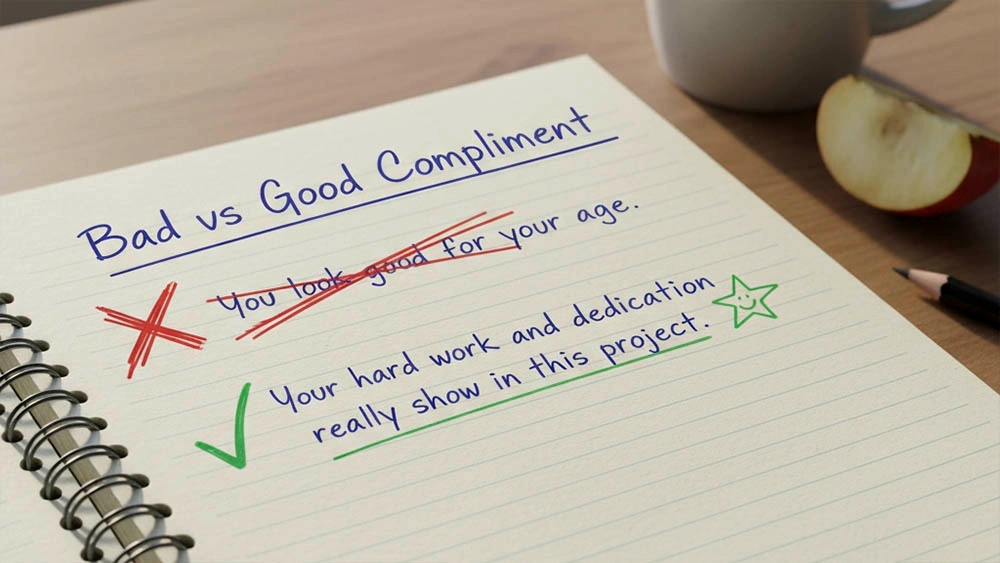 Bad vs Good Compliment
You look good for your age.
Your hard work and dedication
really show in this project.